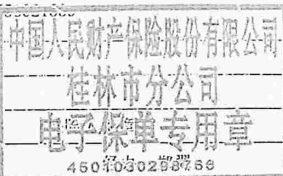 中国人民财产保险股份有限公司
桂林市分公司
电子保单专用章
4501030298768